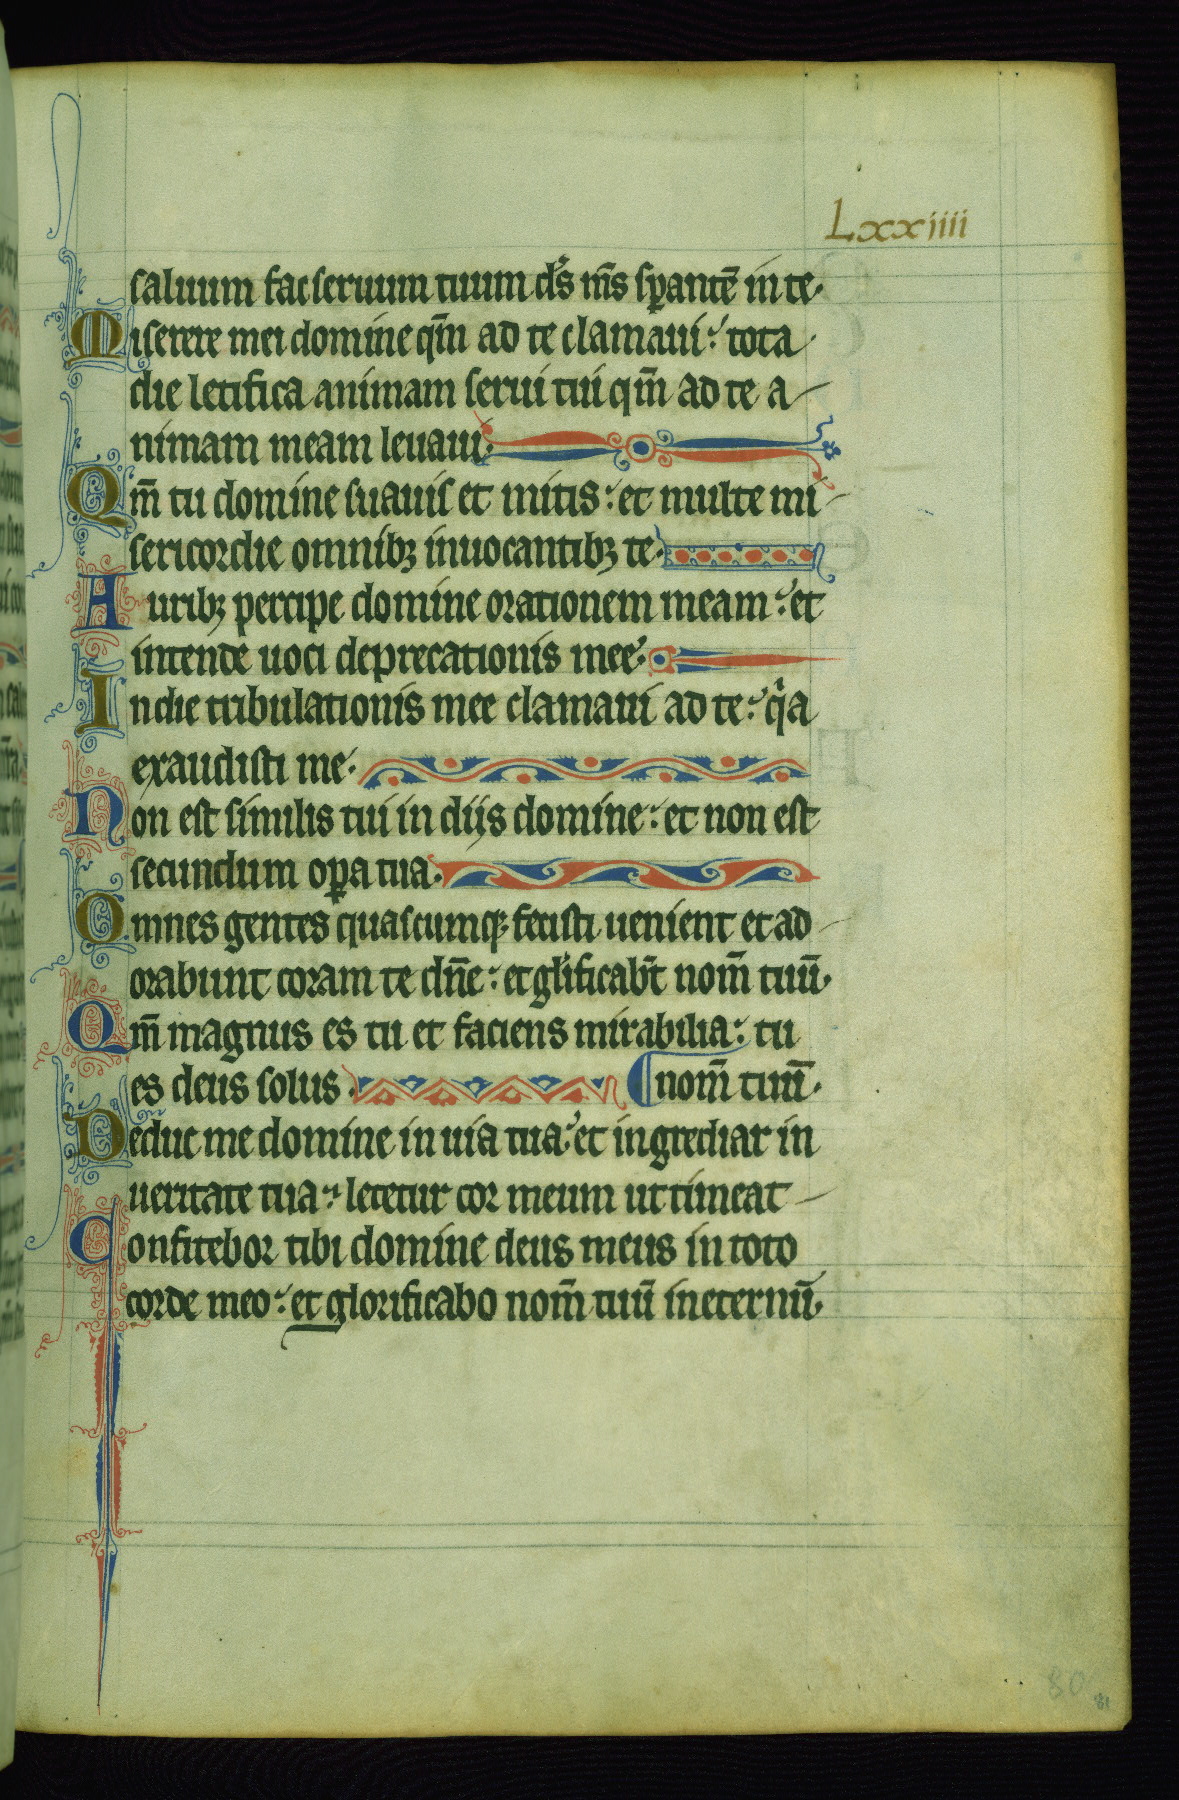 Lxxiiii
saluum fac seruum tuum ds̄ ms̄ sꝑantē in te.
Miserere mei domine qm̄ ad te clamaui: tota
die letifica animam serui tui qm̄ ad te a
nimam meam leuaui.
Qm̄ tu domine suauis et mitis: et multe mi
sericordie omnibꝫ inuocantibꝫ te.
Auribꝫ percipe domine orationem meam: et
intende uoci deprecationis mee.
In die tribulationis mee clamaui ad te: qͥa
exaudisti me.
Non est similis tui in dijs domine: et non est
secundum oꝑa tua.
Omnes gentes quascumqꝫ fecisti uenient et ad
orabunt coram te dn̄e: et gl̄ificabt̄ nom̄ tuū.
Qm̄ magnus es tu et faciens mirabilia: tu
es deus solus. nom̄ tuū.
Deduc me domine in uia tua: et ingrediar in
ueritate tua: letetur cor meum ut timeat
Confitebor tibi domine deus meus in toto
corde meo: et glorificabo nom̄ tuū in eternū.
80
81